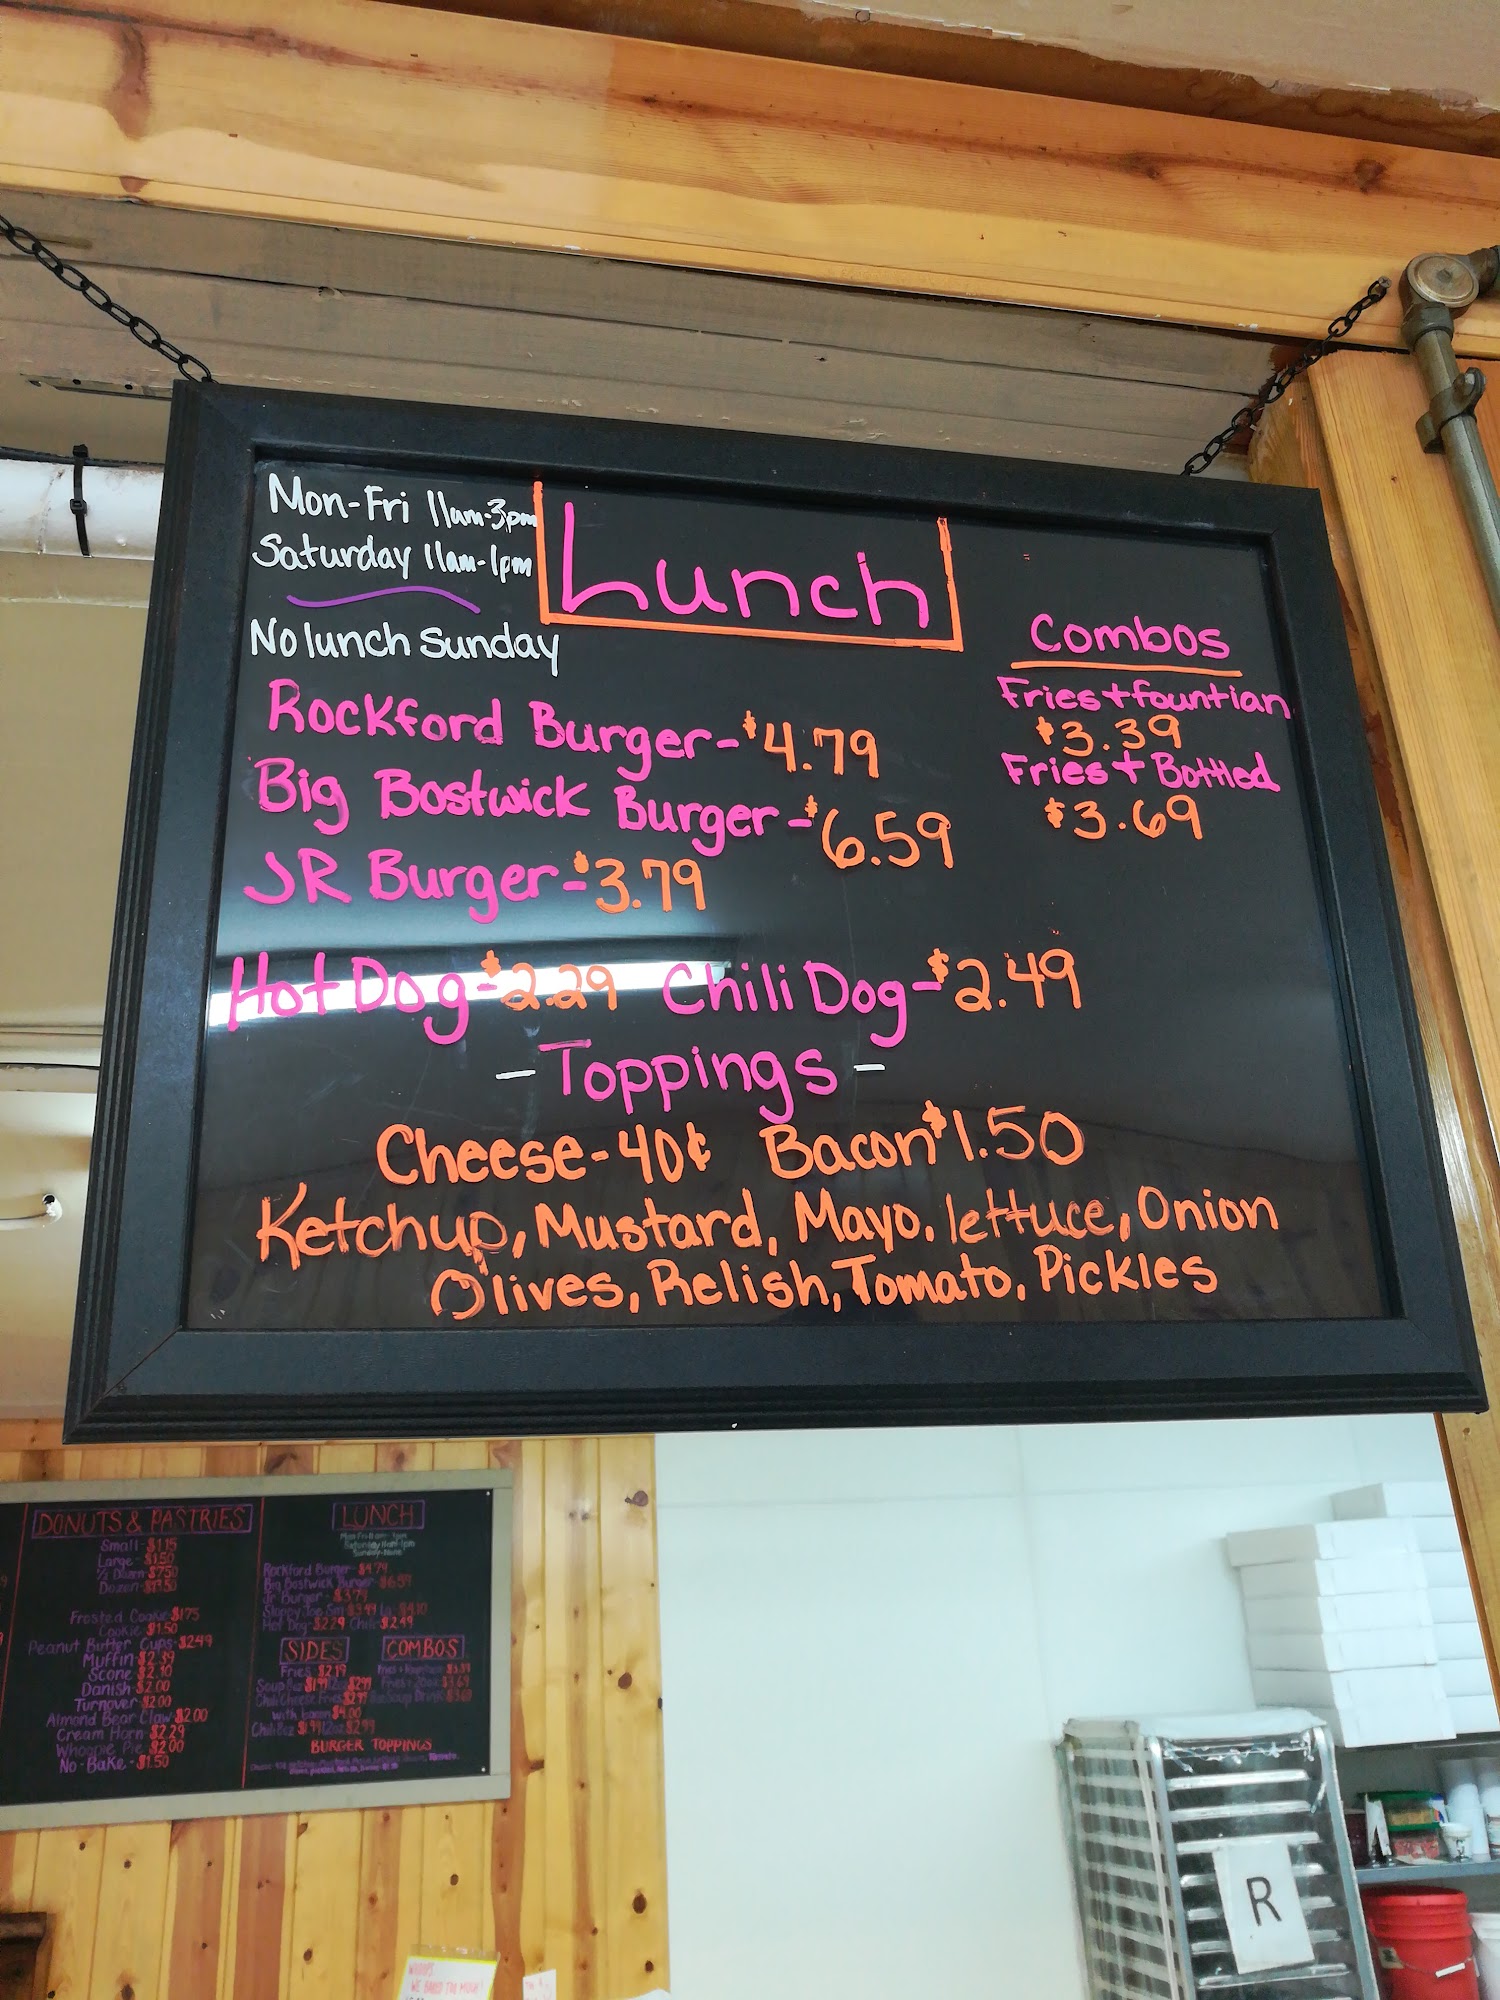 Mon-Fri 11am-3pm
Saturday 11am-1pm
No lunch Sunday
Lunch
Rockford Burger-$4.79
Big Bostwick Burger-$6.59
JR Burger-$3.79
Combos
Fries+fountian
$3.39
Fries+Bottled
$3.69
Hot Dog-$2.29 Chili Dog-$2.49
-Toppings-
Cheese-40¢ Bacon $1.50
Ketchup, Mustard, Mayo, lettuce, Onion
Olives, Relish, Tomato, Pickles
DONUTS & PASTRIES
Small-$1.15
Large-$1.50
1/2 Dozen-$7.50
Dozen-$13.50
Frosted Cookie-$1.75
Cookie-$1.50
Peanut Butter Cups-$2.49
Muffin-$2.39
Scone-$2.10
Danish-$2.00
Turnover $2.00
Almond Bear Claw $2.00
Cream Horn-$2.29
Whoopie Pie-$2.00
No-Bake-$1.50
LUNCH
Saturday 11am-1pm
Rockford Burger-$4.79
Big Bostwick Burger-$6.59
Jr Burger-$3.79
Hot Dog-$2.29 Chili-$2.49
SIDES
Fries $2.19
with bacon $4.00
COMBOS
BURGER TOPPINGS
R